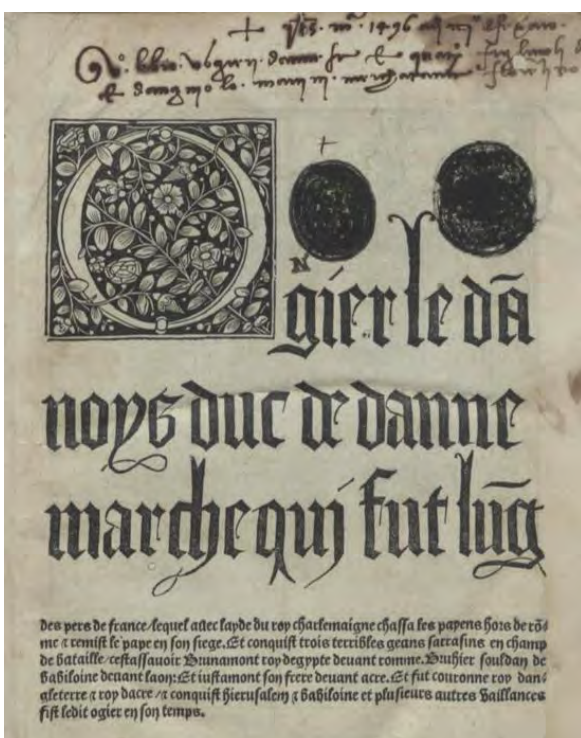 1496
Ogier le dā
noys duc de danne
marche qui fut lūg
des pers de france/lequel auec layde du roy charlemaigne chassa les payens hors de rō⸗
me ⁊ remist le pape en son siege. Et conquist trois terribles geans sarrasins en champ
de bataille/cestassauoir Brunamont roy degypte deuant romme. Bruhier souldan de
Babiloine deuant laon: Et iustamont son frere deuant acre. Et fut couronne roy dan⸗
gleterre ⁊ roy dacre/⁊ conquist hierusalem ⁊ Babiloine et plusieurs autres vaillances
fist ledit ogier en son temps.